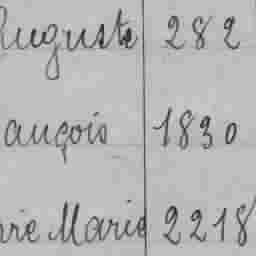 Auguste 282
ançois 1830
rre Marie 2218